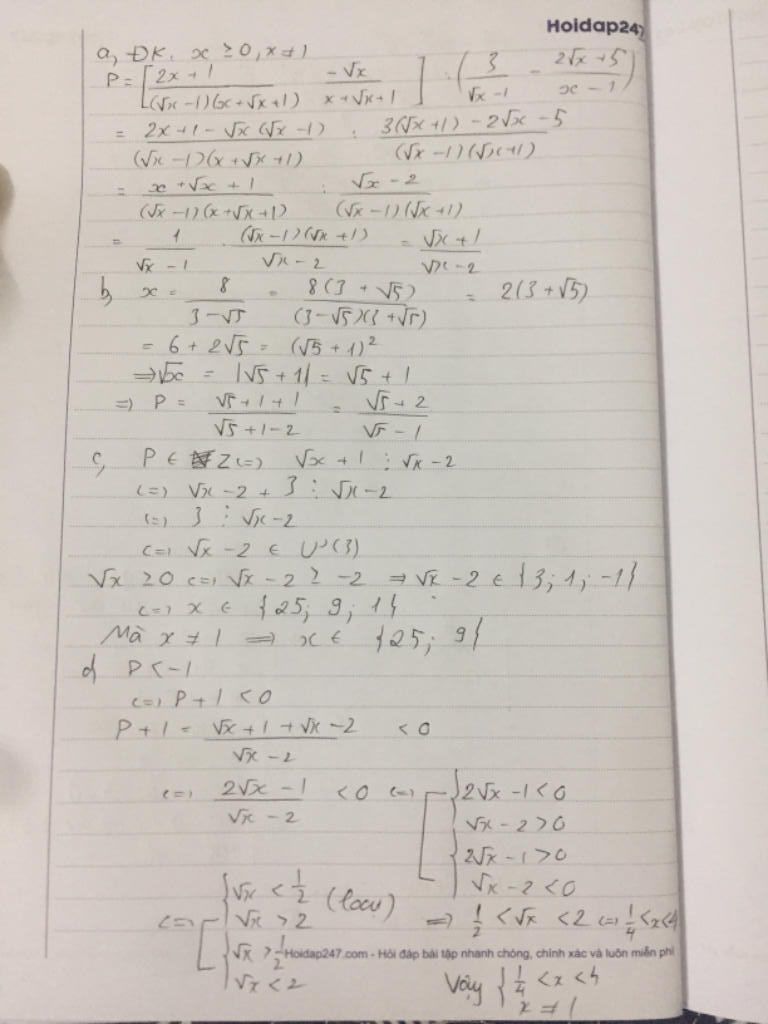 Hoidap247
a, ĐK. x ≥ 0, x ≠ 1
P = [ (2x + 1)/((√x - 1)(x + √x + 1)) (-√x)/(x + √x + 1) ] : ( 3/(√x - 1) - (2√x + 5)/(x - 1) )
= (2x + 1 - √x(√x - 1))/((√x - 1)(x + √x + 1)) : (3(√x + 1) - 2√x - 5)/((√x - 1)(√x + 1))
= (x + √x + 1)/((√x - 1)(x + √x + 1)) : (√x - 2)/((√x - 1)(√x + 1))
= 1/(√x - 1) . ((√x - 1)(√x + 1))/(√x - 2) = (√x + 1)/(√x - 2)
b, x = 8/(3 - √5) = 8(3 + √5)/((3 - √5)(3 + √5)) = 2(3 + √5)
= 6 + 2√5 = (√5 + 1)²
=> √x = |√5 + 1| = √5 + 1
=> P = (√5 + 1 + 1)/(√5 + 1 - 2) = (√5 + 2)/(√5 - 1)
c, P ∈ Z <=> √x + 1 ⋮ √x - 2
<=> √x - 2 + 3 ⋮ √x - 2
<=> 3 ⋮ √x - 2
<=> √x - 2 ∈ Ư(3)
√x ≥ 0 <=> √x - 2 ≥ -2 => √x - 2 ∈ {3; 1; -1}
<=> x ∈ {25; 9; 1}
Mà x ≠ 1 => x ∈ {25; 9}
d, P < -1
<=> P + 1 < 0
P + 1 = (√x + 1 + √x - 2)/(√x - 2) < 0
<=> (2√x - 1)/(√x - 2) < 0 <=> [ { 2√x - 1 < 0
√x - 2 > 0
{ 2√x - 1 > 0
√x - 2 < 0
<=> [ { √x < 1/2
√x > 2 (loại)
{ √x > 1/2
√x < 2
=> 1/2 < √x < 2 <=> 1/4 < x < 4
Hoidap247.com - Hỏi đáp bài tập nhanh chóng, chính xác và luôn miễn phí
Vậy { 1/4 < x < 4
x ≠ 1